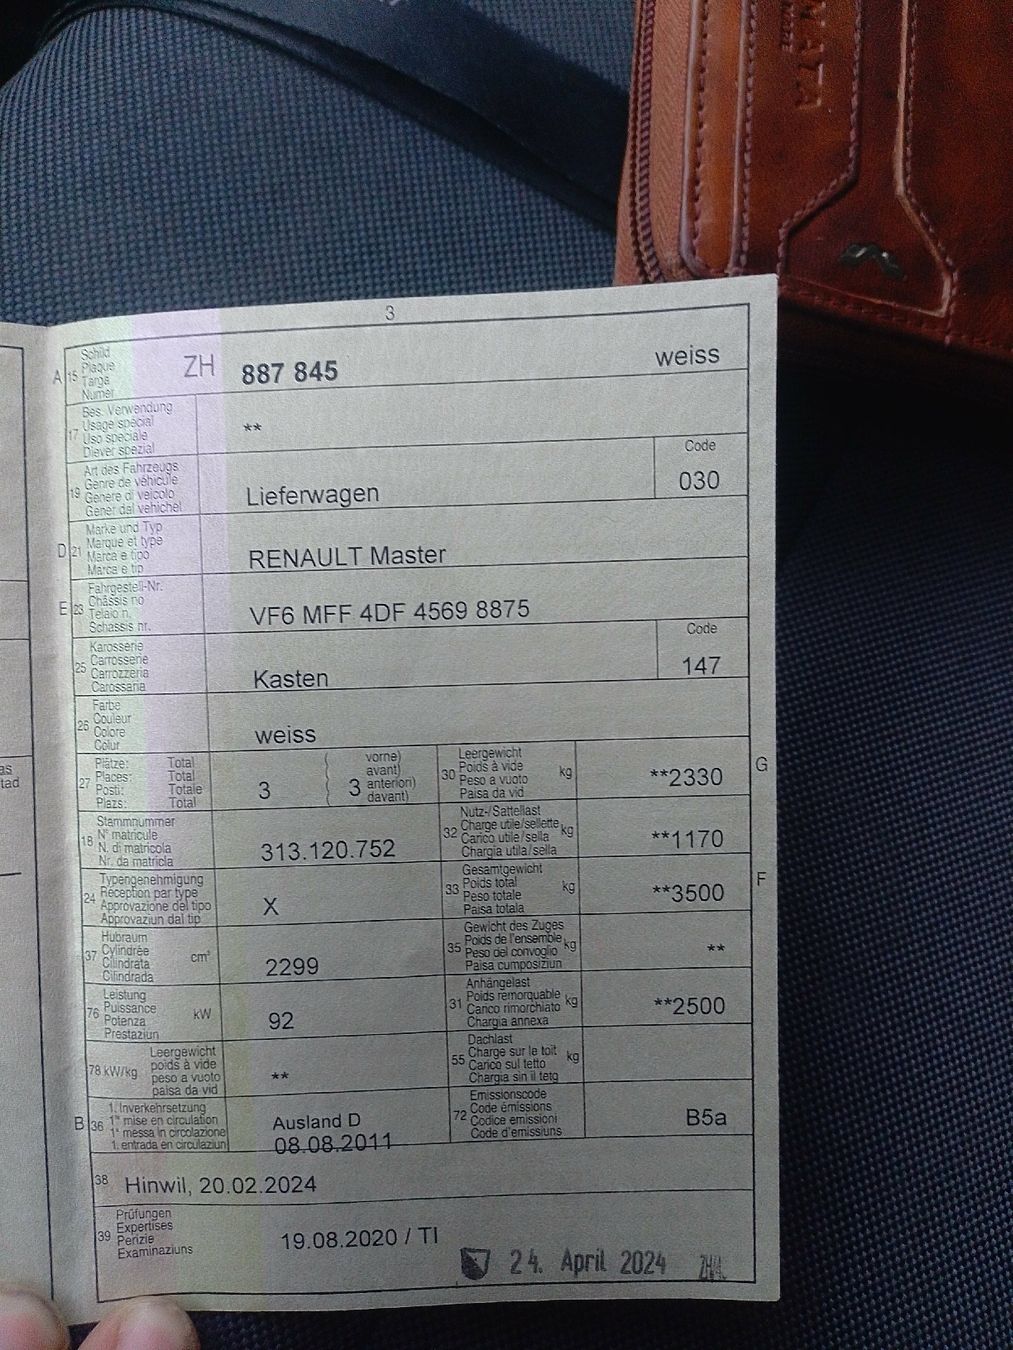 3
A
15
Schild
Plaque
Targa
Numer
ZH
887 845
weiss
17
Bes. Verwendung
Usage spécial
Uso speciale
Diever spezial
**
19
Art des Fahrzeugs
Genre de véhicule
Genere di veicolo
Gener dal vehichel
Lieferwagen
Code
030
D
21
Marke und Typ
Marque et type
Marca e tipo
Marca e tip
RENAULT Master
E
23
Fahrgestell-Nr.
Châssis no
Telaio n.
Schassis nr.
VF6 MFF 4DF 4569 8875
25
Karosserie
Carrosserie
Carrozzeria
Carossaria
Kasten
Code
147
26
Farbe
Couleur
Colore
Colur
weiss
27
Plätze: Total
Places: Total
Posti: Totale
Plazs: Total
3
3
vorne)
avant)
anteriori)
davant)
30
Leergewicht
Poids à vide
Peso a vuoto
Paisa da vid
kg
**2330
G
18
Stammnummer
N° matricule
N. di matricola
Nr. da matricla
313.120.752
32
Nutz-/Sattellast
Charge utile/sellette
Carico utile/sella
Chargia utila/sella
kg
**1170
24
Typengenehmigung
Réception par type
Approvazione del tipo
Approvaziun dal tip
X
33
Gesamtgewicht
Poids total
Peso totale
Paisa totala
kg
**3500
F
37
Hubraum
Cylindrée
Cilindrata
Cilindrada
cm³
2299
35
Gewicht des Zuges
Poids de l'ensemble
Peso del convoglio
Paisa cumposiziun
kg
**
76
Leistung
Puissance
Potenza
Prestaziun
kW
92
31
Anhängelast
Poids remorquable
Carico rimorchiato
Chargia annexa
kg
**2500
78 kW/kg
Leergewicht
poids à vide
peso a vuoto
paisa da vid
**
55
Dachlast
Charge sur le toit
Carico sul tetto
Chargia sin il tetg
kg
B
36
1. Inverkehrsetzung
1re mise en circulation
1a messa in circolazione
1. entrada en circulaziun
Ausland D
08.08.2011
72
Emissionscode
Code émissions
Codice emissioni
Code d'emissiuns
B5a
38
Hinwil, 20.02.2024
39
Prüfungen
Expertises
Perizie
Examinaziuns
19.08.2020 / TI
24. April 2024